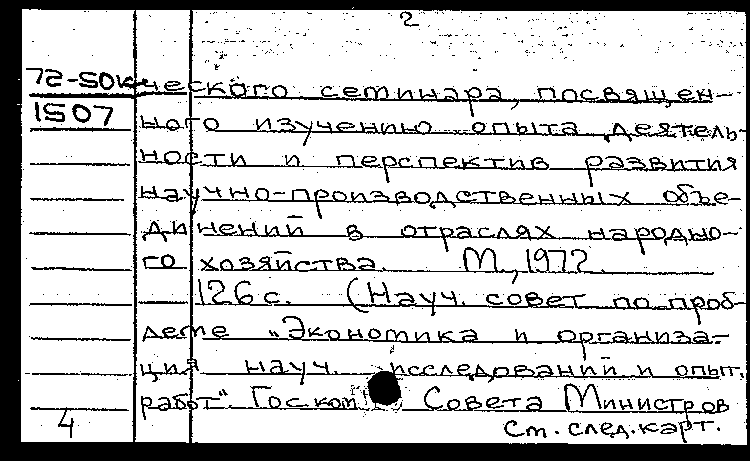 2
72-SOK
1507
ческого семинара, посвящен-
ного изучению опыта деятель-
ности и перспектив развития
научно-производственных объе-
динений в отраслях народно-
го хозяйства. М., 1972.
126 с. (Науч. совет по проб-
леме "Экономика и организа-
ция науч. исследований и опыт.
работ". Госком Совета Министров
4
См. след. карт.